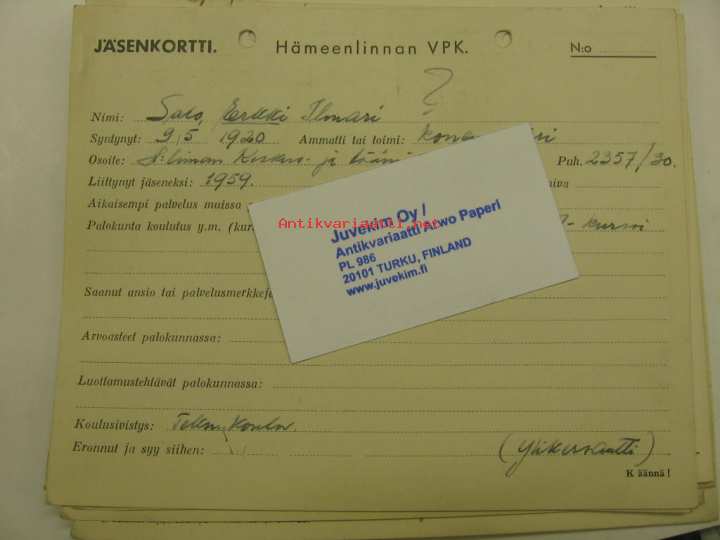 JÄSENKORTTI. Hämeenlinnan VPK. N:o
?
Nimi: Salo, Erkki Ilmari
Syntynyt: 9/5 1920 Ammatti tai toimi:
Osoite: Puh. 2357/30.
Liittynyt jäseneksi: 1959.
Aikaisempi palvelus muissa
Palokunta koulutus y.m. (kur kurssi
Saanut ansio tai palvelusmerkkejä
Arvoasteet palokunnassa:
Luottamustehtävät palokunnassa:
Koulusivistys:
Eronnut ja syy siihen:
K äännä!
Juvekim Oy /
Antikvariaatti Arwo Paperi
PL 986
20101 TURKU, FINLAND
www.juvekim.fi
Antikvariaatti.net